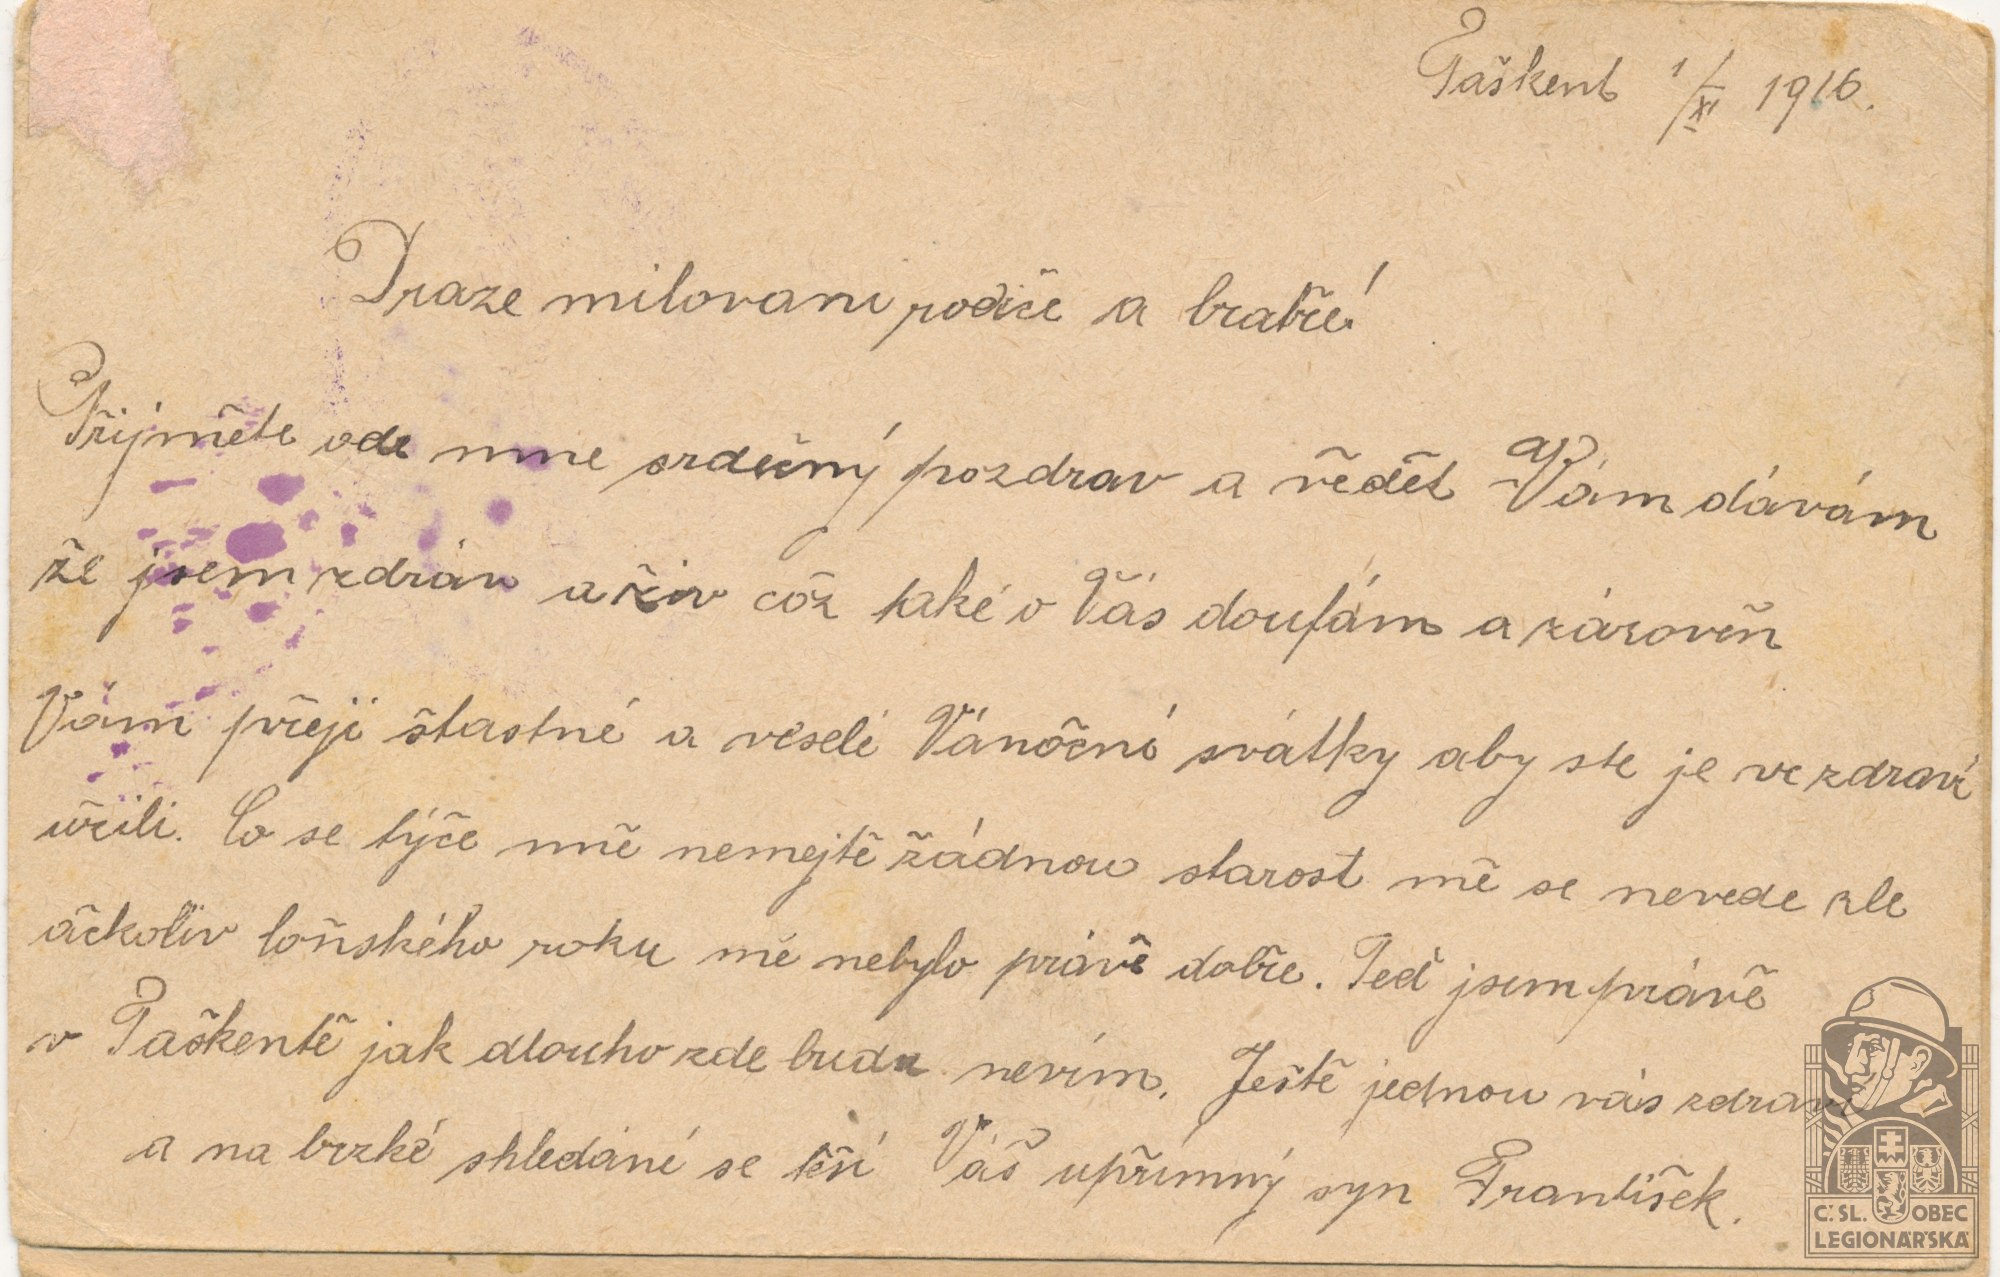 Taškent 1/XI 1916.
Draze milovani rodiče a bratře!
Přijměte ode mne srdečný pozdrav a vědět Vám dávám
že jsem zdráv a živ což také o Vás doufám a zároveň
Vám přeji štastné a veselé Vánoční svátky aby ste je ve zdraví
užili. Co se týče mně nemejtě žádnou starost mě se nevede zle
ačkoliv loňského roku mě nebylo právě dobře. Teď jsem právě
v Taškentě jak dlouho zde budu nevím. Ještě jednou vás zdraví
a na brzké shledáné se těší Váš upřímný syn František.
Č.SL. OBEC
LEGIONÁŘSKÁ